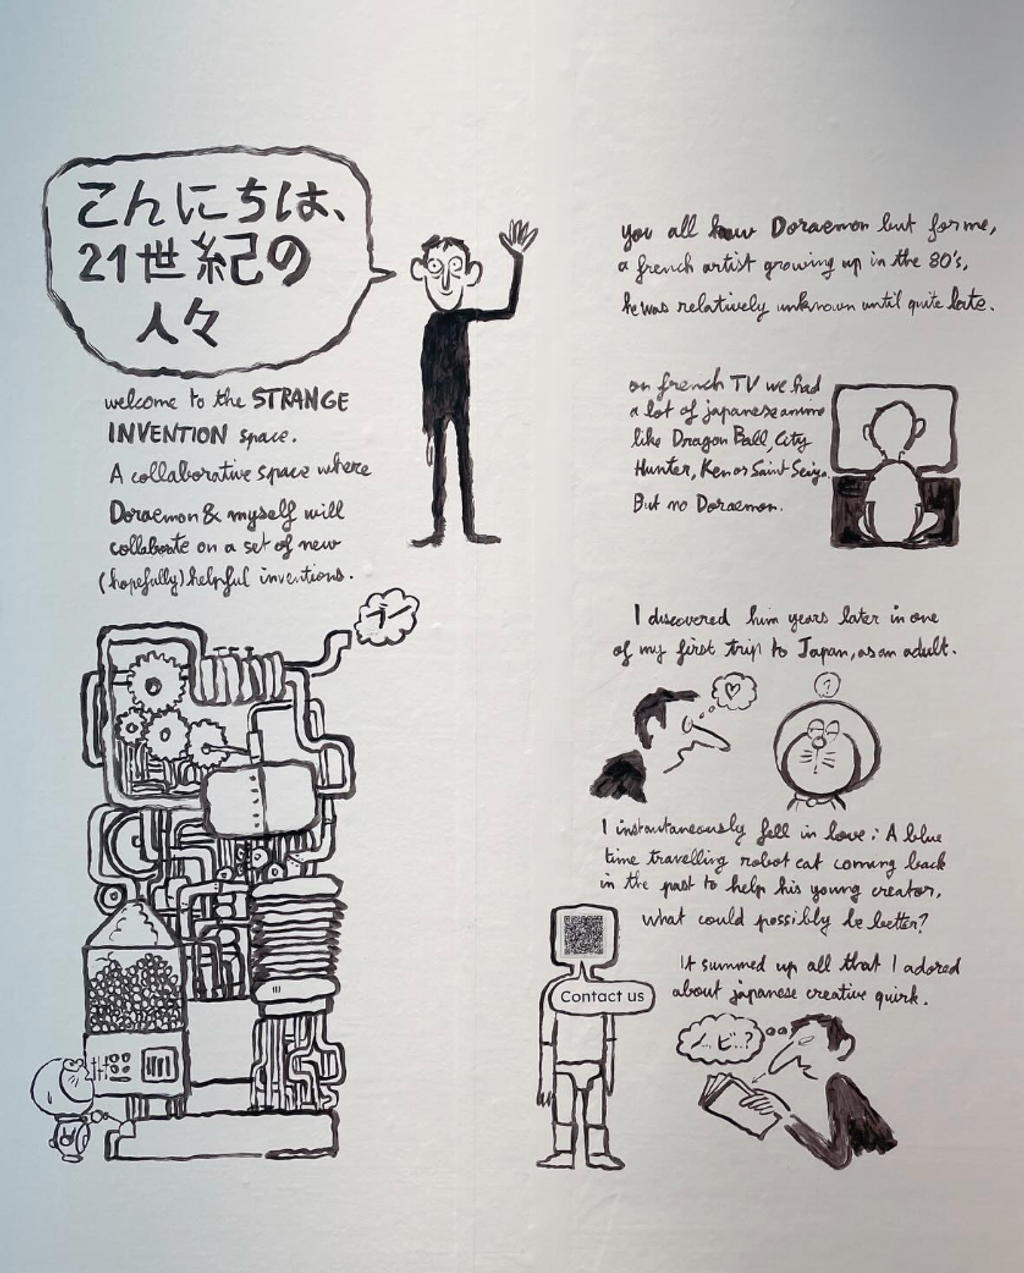 こんにちは、
21世紀の
人々
welcome to the STRANGE
INVENTION space.
A collaborative space where
Doraemon & myself will
collaborate on a set of new
(hopefully) helpful inventions.
you all know Doraemon but for me,
a french artist growing up in the 80's,
he was relatively unknown until quite late.
on french TV we had
a lot of japanese anime
like Dragon Ball, City
Hunter, Ken or Saint Seiya.
But no Doraemon.
I discovered him years later in one
of my first trip to Japan, as an adult.
?
I instantaneously fell in love: A blue
time travelling robot cat coming back
in the past to help his young creator,
what could possibly be better?
It summed up all that I adored
about japanese creative quirk.
Contact us
ノ..ビ..?